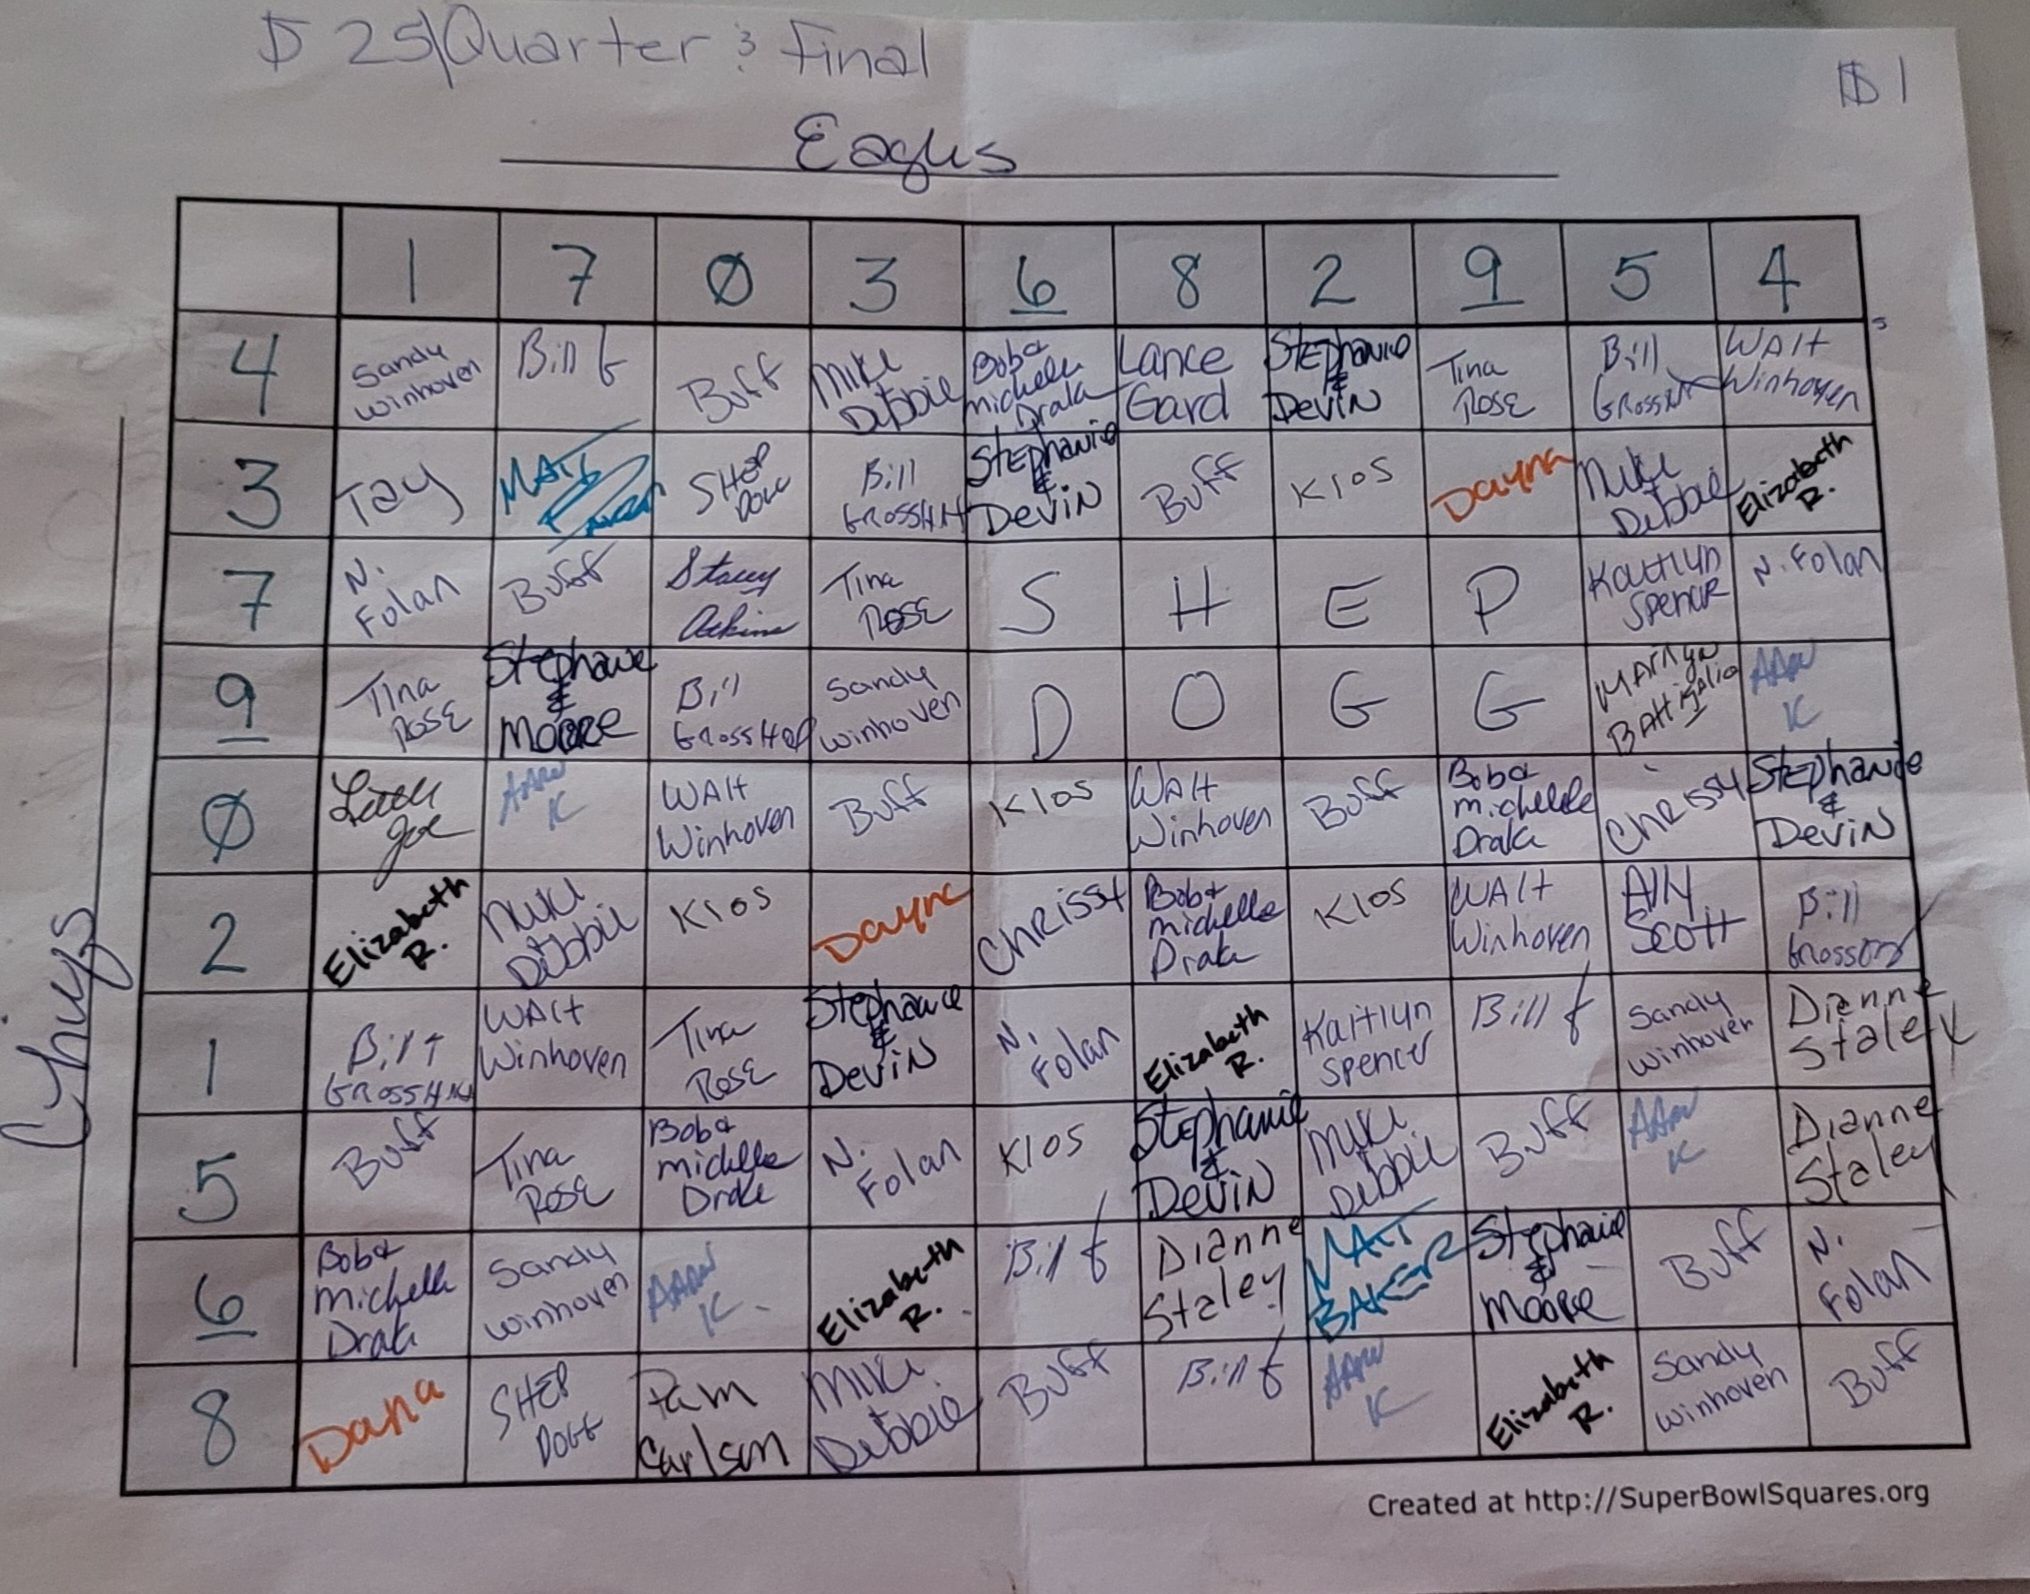 $25/Quarter & Final
$1
Eagles
1 7 0 3 6 8 2 9 5 4
4 Sandy Winhoven Bill f Buff Mike Debbie Bob & Michelle Drake Lance Gard Stephanie & Devin Tina Rose Bill Walt Winhoven
3 Tay Matt SHEP DOGG Bill Stephanie & Devin Buff Klos Dayna Mike Debbie Elizabeth R.
7 N. Folan Buff Stacey Tina Rose S H E P Kaitlyn Spencer N. Folan
9 Tina Rose Stephanie & Moore Bill Sandy Winhoven D O G G K
0 Little Joe K Walt Winhoven Buff Klos Walt Winhoven Buff Bob & Michelle Drake Chrissy Stephanie & Devin
2 Elizabeth R. Mike Debbie Klos Dayna Chrissy Bob & Michelle Drake Klos Walt Winhoven Ally Scott Bill
Chiefs
1 Bill Walt Winhoven Tina Rose Stephanie & Devin N. Folan Elizabeth R. Kaitlyn Spencer Bill f Sandy Winhoven Dianne Staley
5 Buff Tina Rose Bob & Michelle Drake N. Folan Klos Stephanie & Devin Mike Debbie Buff K Dianne Staley
6 Bob & Michelle Drake Sandy Winhoven K. Elizabeth R. Bill f Dianne Staley MATT BAKER Stephanie & Moore Buff N. Folan
8 Dana SHEP DOGG Pam Carlson Mike Debbie Buff Bill f K Elizabeth R. Sandy Winhoven Buff
Created at http://SuperBowlSquares.org